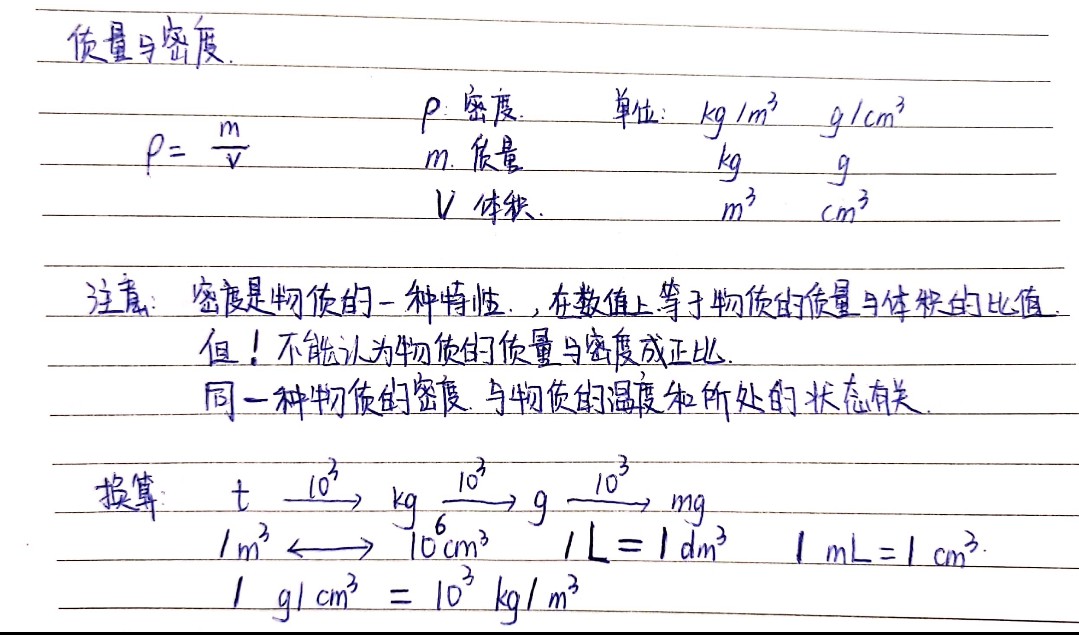 质量与密度.
ρ: 密度. 单位: kg/m³ g/cm³
ρ = m/v m. 质量 kg g
V 体积. m³ cm³
注意: 密度是物质的一种特性., 在数值上等于物质的质量与体积的比值.
但! 不能认为物质的质量与密度成正比.
同一种物质的密度. 与物质的温度和所处的状态有关.
换算: t —10³→ kg —10³→ g —10³→ mg
1m³ ⟷ 10⁶cm³ 1L=1dm³ 1 mL=1 cm³.
1 g/cm³ = 10³ kg/m³